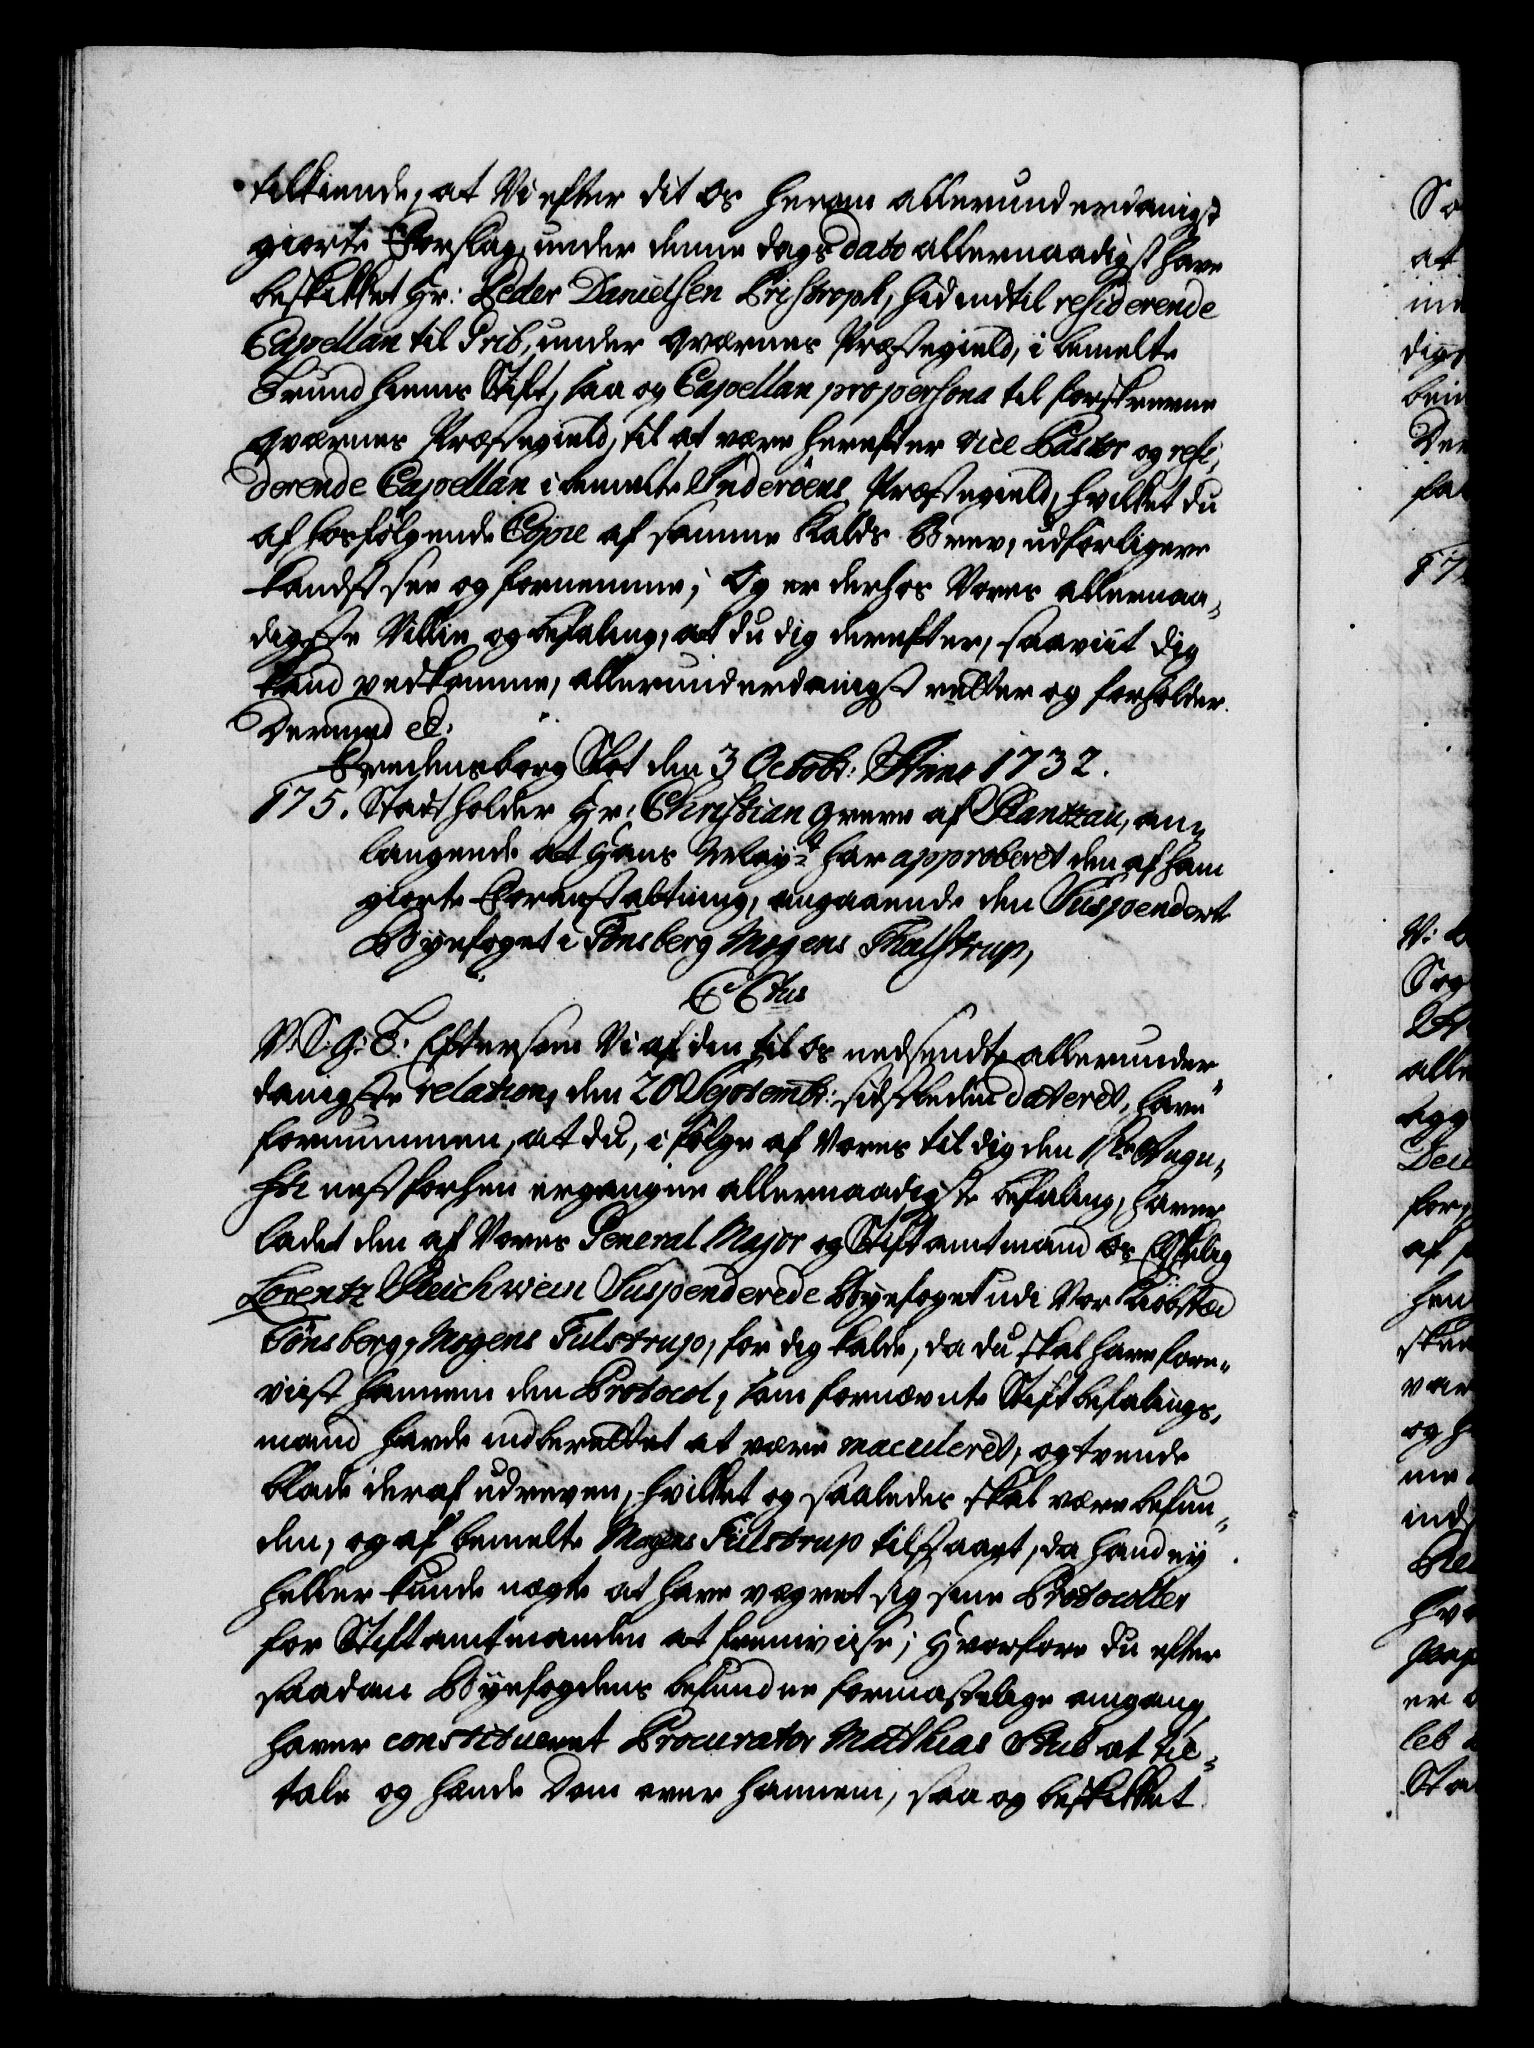 tilkiende, at Vi efter dit os herom allerunderdanigst
giorte Forslag, under denne dags dato allernaadigst have
beskikket Hr: Peder Danielsen Bristroph, hid indtil residerende
Capellan til Grib, under Qværnes Præstegield, i bemelte
Trundhiems Stift, saa og Capellan pro persona til forskrevne
Qværnes Præstegield, til at være herefter vice Pastor og resi„
derende Capellan i bemelte Inderöens Præstegield, hvilket du
af hosfølgende Copie af samme Kalds Brev, udførligere
kandst see og fornemme; Og er derhos Vores allernaa„
digste Villie og befaling, at du dig derefter, saaviit dig
kand vedkomme, allerunderdanigst retter og forholder.
Dermed etc:
Fredensborg Slot den 3 Octobr: Anno 1732.
175. Stadtholder Hr: Christian Greve af Rantzau, an„
langende at Hans Mayt: har approberet den af ham
giorte Foranstaltning, angaaende den Suspenderte
Byefoget i Tønsberg Mogens Thalstrup,
C Ctus
V. S. G. T. Eftersom Vi af den til os nedsendte allerunder„
danigste relation, den 20 Septembr: sidstleden dateret, have
fornummen, at du, i følge af Vores til dig den Augu„
sti nest forhen ergangne allernaadigste befaling, haver
ladet den af Vores General Major og Stiftamtmand os Elskelig
Lorentz Reichwein Suspenderede Byefoget udi Vor Kiøbsted
Tönsberg, Mogens Tulstrup, for dig kalde, da du skal have fore„
viist hannem den Protocol, som fornævnte Stiftbefalings„
mand havde indberettet at være maculeret, og tvende
blade deraf udreven, hvilket og saaledes skal være befun„
den, og af bemelte Mogens Tulstrup tilstaaet, da hand ey
heller kunde nægte at have vægret sig sine Protocoller
for Stiftamtmanden at fremviise; Hvorfore du efter
saadan Byefogdens befundne formastelige omgang,
haver constitueret Procurator Matthias Stub at til„
tale og hænde Dom over hannem, saa og beskikket